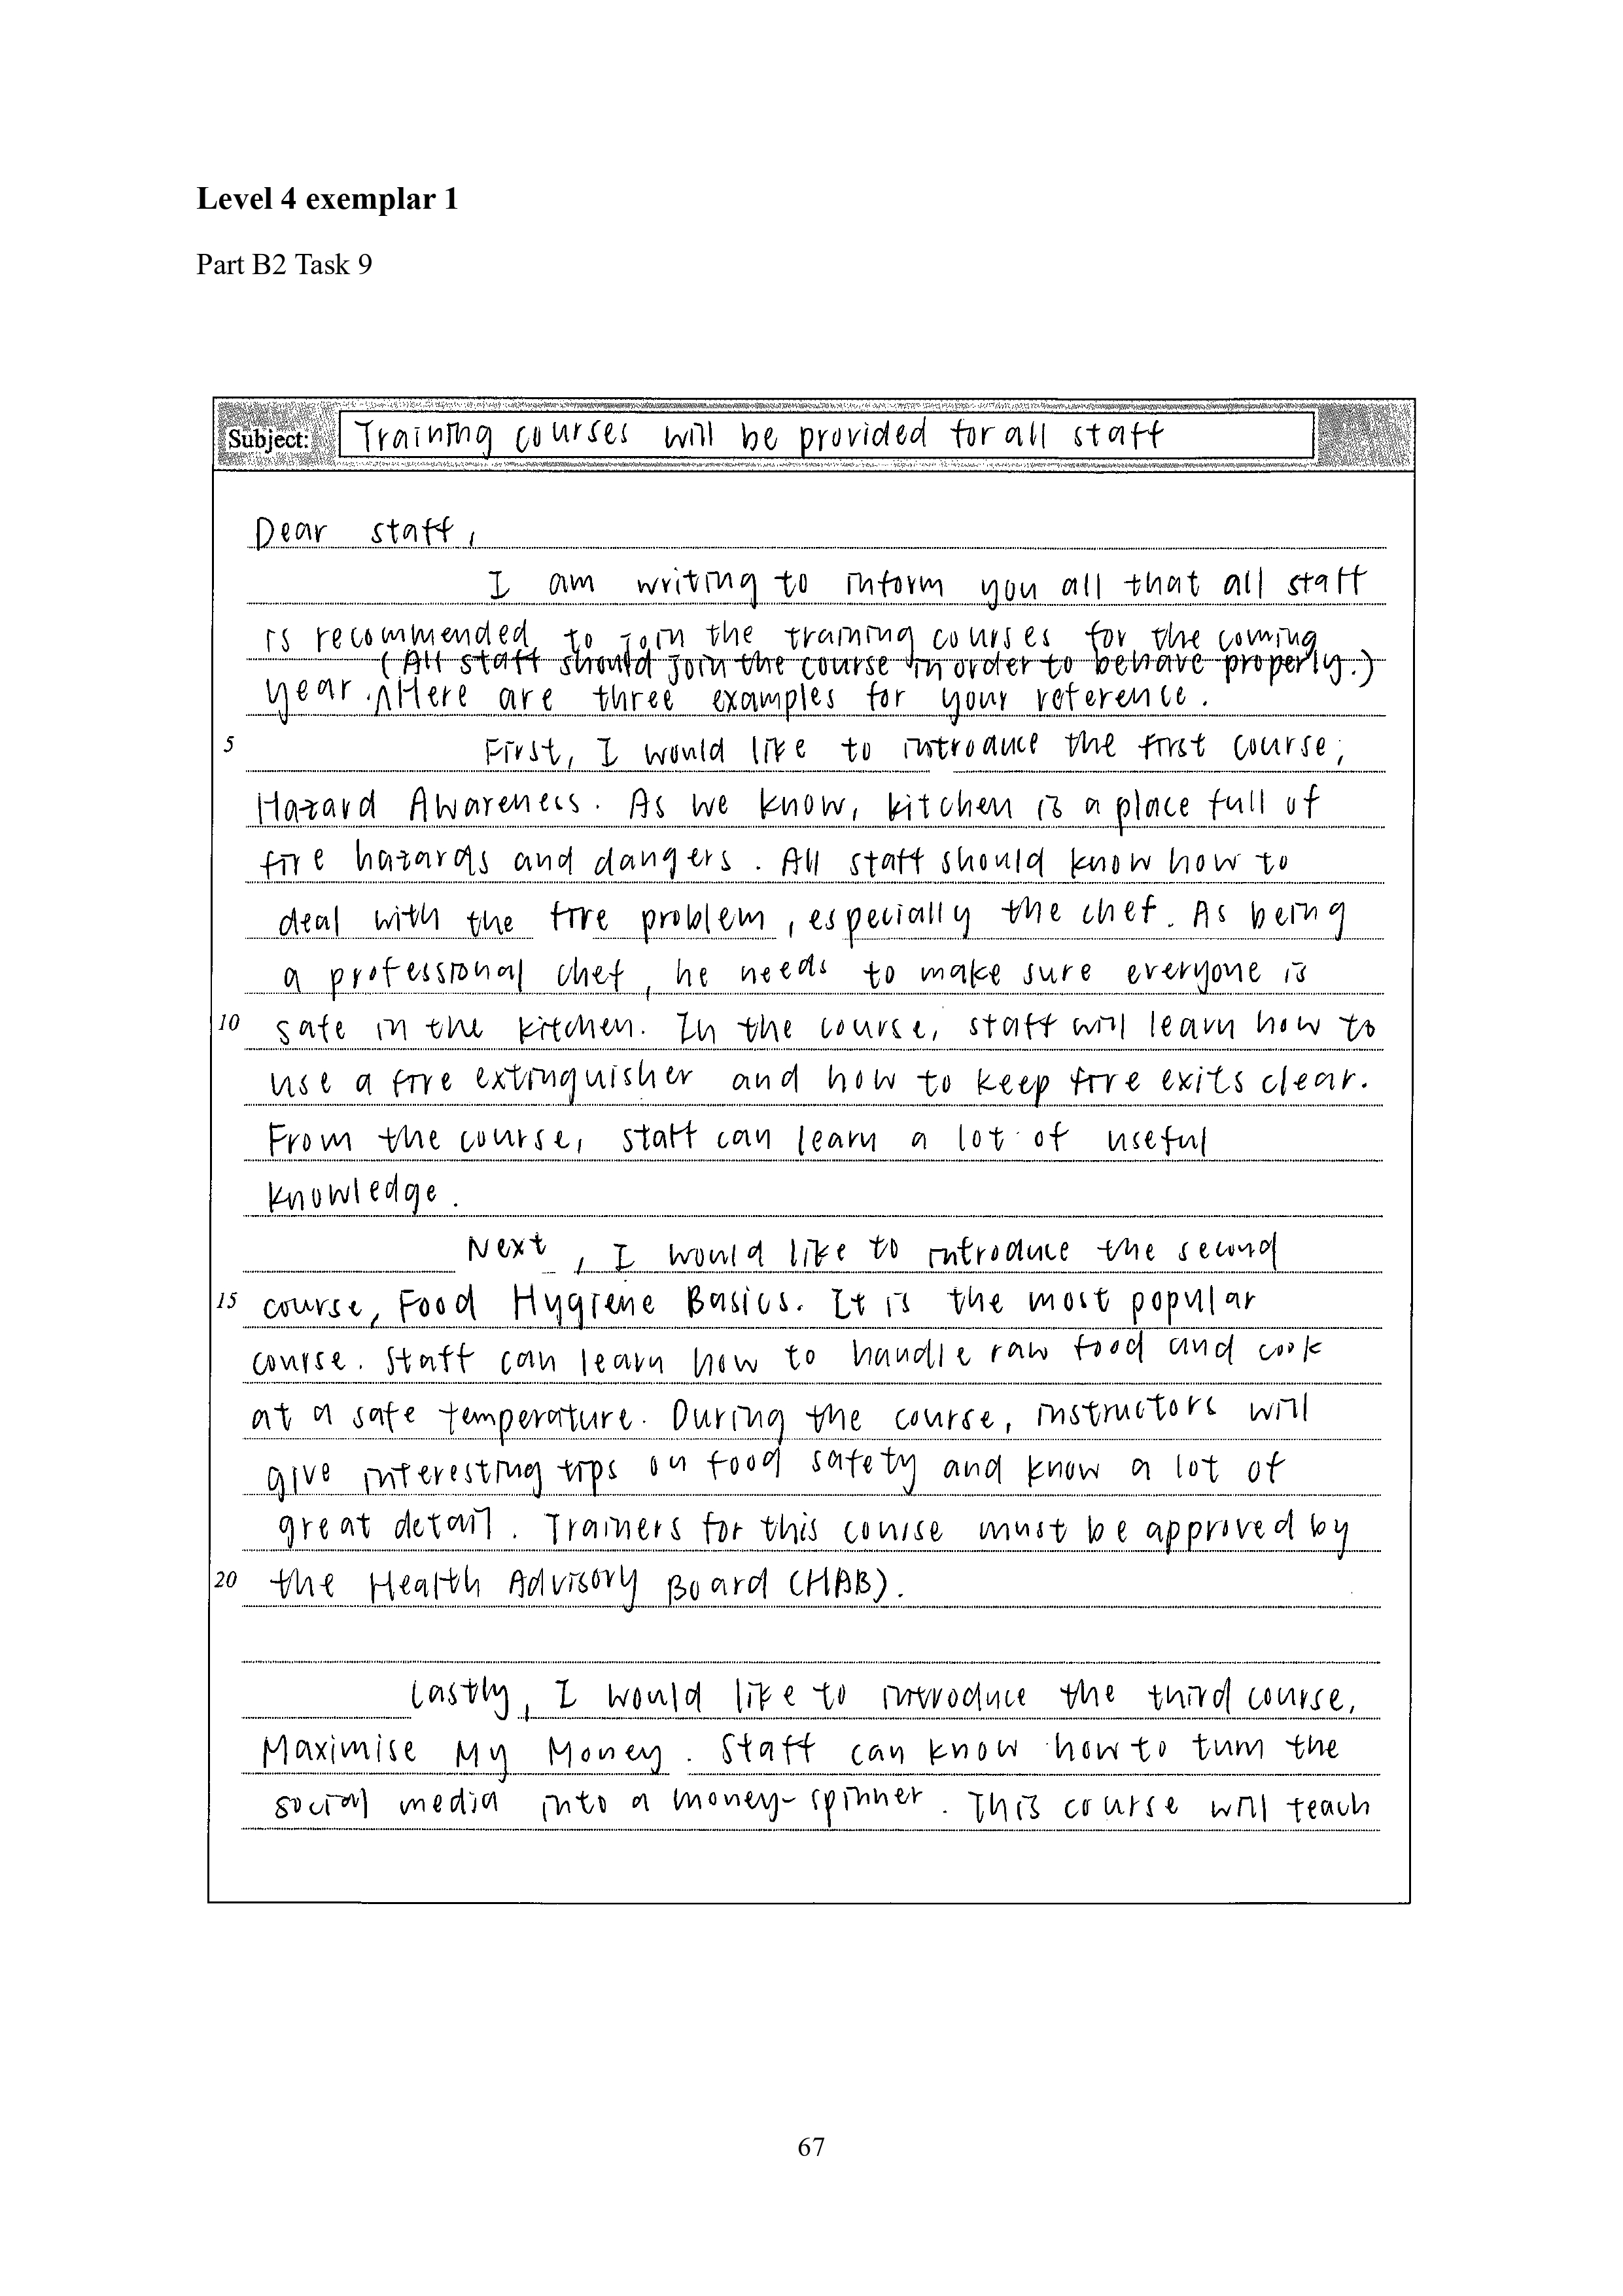 Level 4 exemplar 1
Part B2 Task 9
Subject: Training courses will be provided for all staff
Dear staff,
I am writing to inform you all that all staff
is recommended to join the training courses for the coming
(All staff should join the course in order to behave properly.)
year. ∧Here are three examples for your reference.
5 First, I would like to introduce the first course,
Hazard Awareness. As we know, kitchen is a place full of
fire hazards and dangers. All staff should know how to
deal with the fire problem, especially the chef. As being
a professional chef, he needs to make sure everyone is
10 safe in the kitchen. In the course, staff will learn how to
use a fire extinguisher and how to keep fire exits clear.
From the course, staff can learn a lot of useful
knowledge.
Next, I would like to introduce the second
15 course, Food Hygiene Basics. It is the most popular
course. Staff can learn how to handle raw food and cook
at a safe temperature. During the course, instructors will
give interesting tips on food safety and know a lot of
great detail. Trainers for this course must be approved by
20 the Health Advisory Board (HAB).
Lastly, I would like to introduce the third course,
Maximise My Money. Staff can know how to turn the
social media into a money-spinner. This course will teach
67